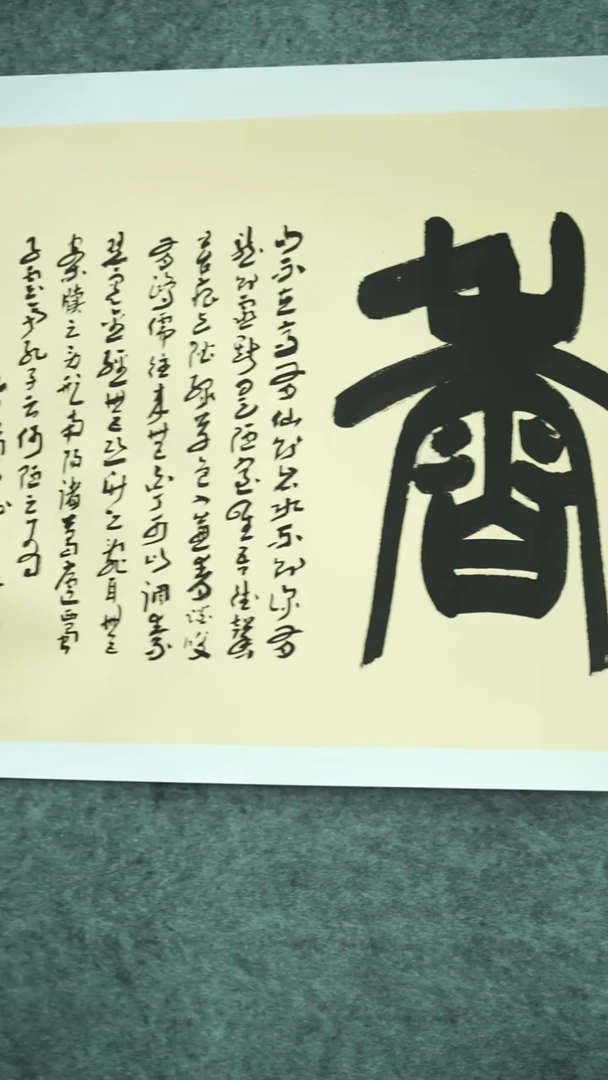 山不在高有仙則名水不在深有
龍則靈斯是陋室惟吾德馨
苔痕上階綠草色入簾青談笑
有鴻儒往來無白丁可以調素
琴閱金經無絲竹之亂耳無
案牘之勞形南陽諸葛廬西蜀
子雲亭孔子云何陋之有